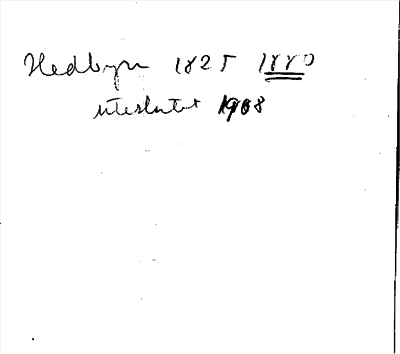 Hedbyn 1825 1880
uteslutet 1908